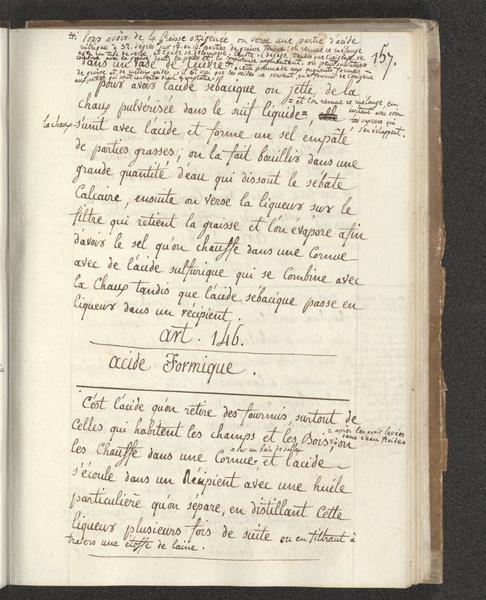 157.
+. Pour avoir de la Graisse oxigénée on verse une partie d'acide
nitrique à 32. degrés sur 15. ou 16. parties de graisse fondue: on remue ce mélange
dans un vase de cuivre +.
pour avoir l'acide sébacique on jette de la
chaux pulverisée dans le suif liquide =
= et l'on remue ce mélange, en
évitant avec soin
les vapeurs qui
s'en échappent.
la chaux s'unit avec l'acide et forme un sel empâté
de parties grasses; on la fait bouillir dans une
grande quantité d'eau qui dissout le sébate
Calcaire, ensuite on verse la liqueur sur le
filtre qui retient la graisse et l'on évapore afin
d'avoir le sel qu'on chauffe dans une Cornue
avec de l'acide sulfurique qui se combine avec
la Chaux tandis que l'acide sébacique passe en
liqueur dans un récipient.
art. 146.
acide Formique.
C'est l'acide qu'on retire des fourmis, surtout de
Celles qui habitent les champs et les Bois; = on
= après les avoir lavées
dans l'eau froide
les Chauffe dans une Cornue = et l'acide
= sur un bain de sable
s'écoule dans un Récipient avec une huile
particulière qu'on separe, en distillant Cette
liqueur plusieurs fois de suite ou en filtrant à
travers une étoffe de laine.